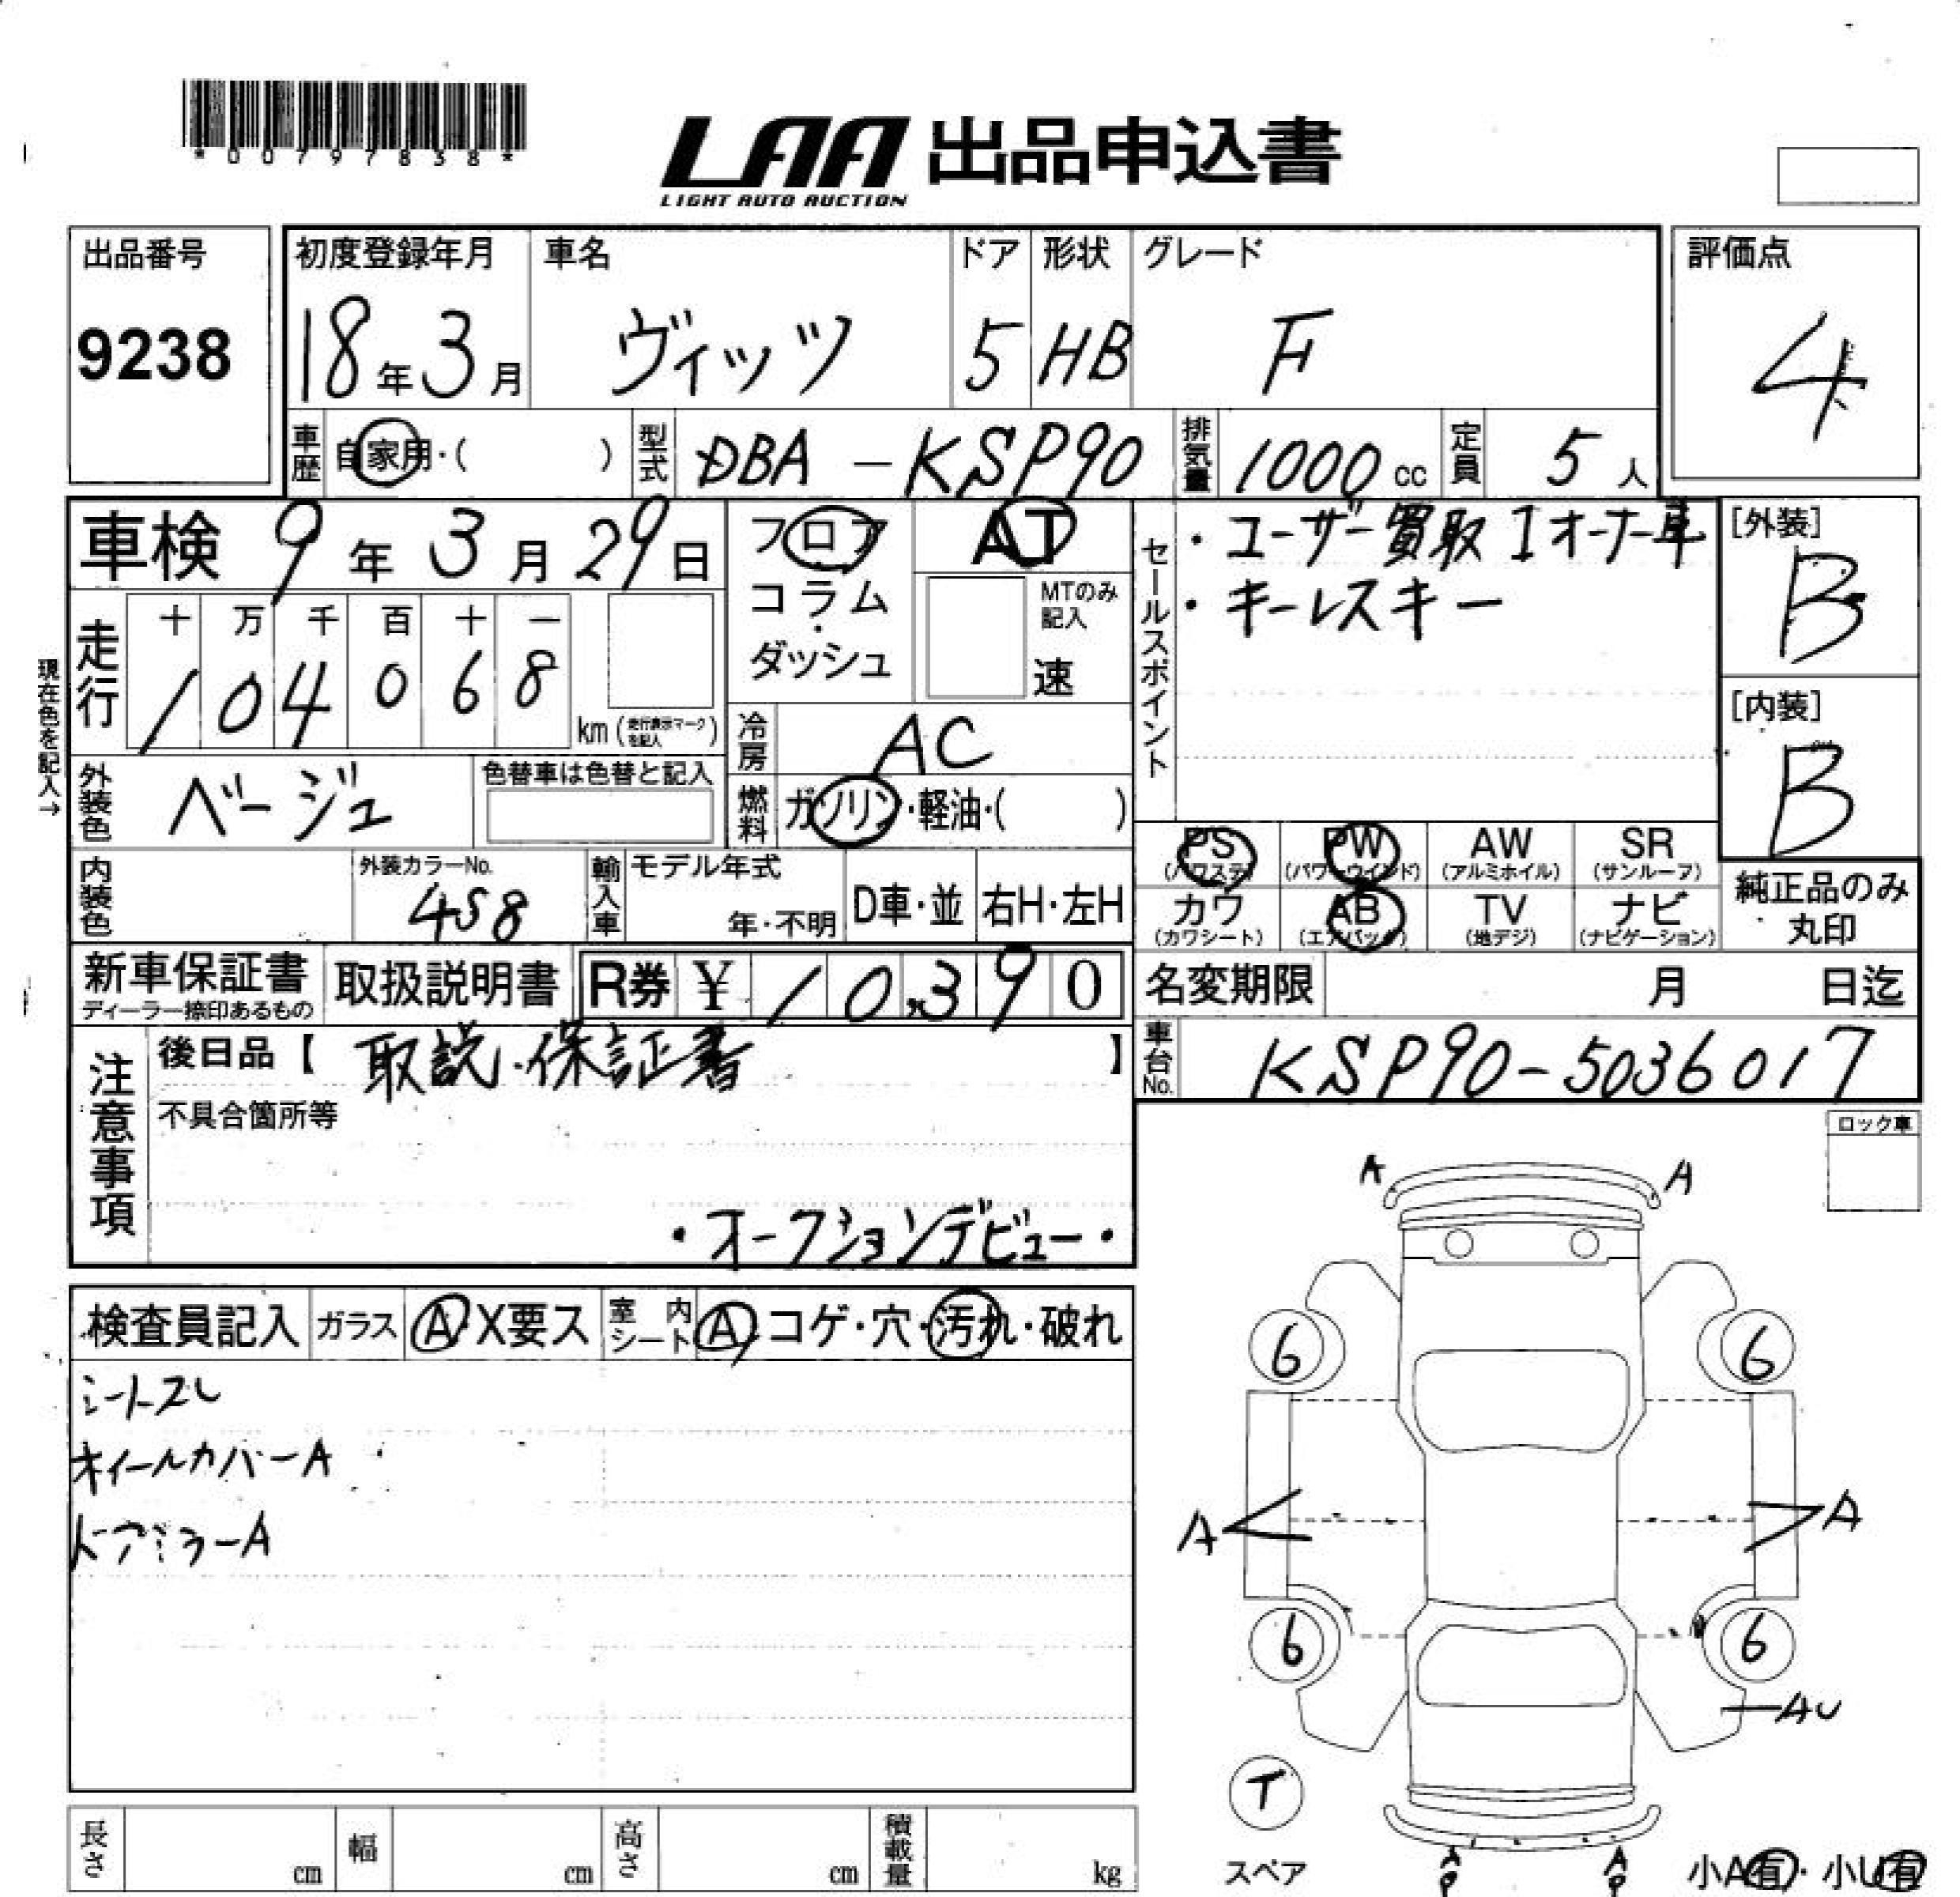 *00797838*
LAA 出品申込書
LIGHT AUTO AUCTION
出品番号 初度登録年月 車名 ドア 形状 グレード 評価点
9238 18年3月 ヴィッツ 5 HB F 4
車歴 自家用・( ) 型式 DBA-KSP90 排気量 1000cc 定員 5人
車検 9年3月29日 フロア AT セールスポイント ・ユーザー買取 1オーナー車 [外装]
コラム・ダッシュ MTのみ記入 速 ・キーレスキー B
走行 十 万 千 百 十 一
104068 km (走行表示マークを記入) [内装]
現在色を記入→ 冷房 AC B
外装色 ベージュ 色替車は色替と記入 燃料 ガソリン・軽油・( )
PS (パワステ) PW (パワーウインド) AW (アルミホイル) SR (サンルーフ)
内装色 外装カラーNo. 4S8 輸入車 モデル年式 年・不明 D車・並 右H・左H
カワ (カワシート) AB (エアバック) TV (地デジ) ナビ (ナビゲーション) 純正品のみ丸印
新車保証書 ディーラー捺印あるもの 取扱説明書 R券 ¥ 10,390 名変期限 月 日迄
注意事項 後日品【 取説・保証書 】 車台No. KSP90-5036017
不具合箇所等 ロック車
・オークションデビュー・
A A
検査員記入 ガラス A・X要ス 室内シート A・コゲ・穴・汚れ・破れ
6 6
シートスレ
ホイールカバーA
A A
ドアミラーA
6 6
AU
T
スペア
長さ cm 幅 cm 高さ cm 積載量 kg
AP AP
小A有・小U有